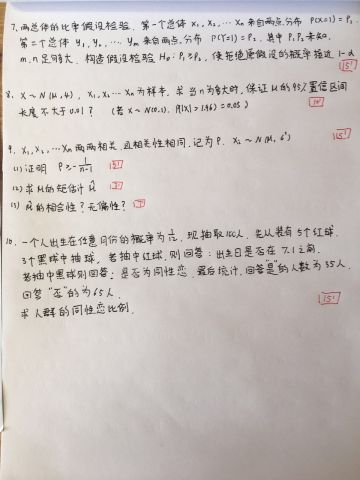 7. 两总体的比率假设检验. 第一个总体 X₁, X₂, … Xₙ 来自两点分布 P(X=1) = P₁.
第二个总体 Y₁, Y₂, … Yₘ 来自两点分布 P(Y=1) = P₂. 其中 P₁ P₂ 未知.
m, n 足够大. 构造假设检验 H₀: P₁ ≥ P₂, 使拒绝原假设的概率 1-α
15'
8. X ~ N(μ, 4), X₁, X₂ … Xₙ 为样本. 求当 n 为多大时, 保证 μ 的 95% 置信区间
长度不大于 0.01? (若 X ~ N(0,1), P(|X| > 1.96) = 0.05)
10'
9. X₁, X₂, … Xₙ 两两相关. 且相关性相同. 记为 ρ. Xᵢ ~ N(μ, σ²)
(1) 证明 ρ ≥ -1/(n-1)
(2) 求 μ 的矩估计 μ̂
(3) μ̂ 的相合性? 无偏性?
10. 一个人出生在任意月份的概率为 1/12. 现抽取 100 人. 先从装有 5 个红球.
3 个黑球中抽球. 若抽中红球. 则回答: 出生日是否在 7.1 之前.
若抽中黑球则回答: 是否为同性恋. 最后统计. 回答"是"的人数为 35 人.
回答 "否" 的为 65 人.
15'
求人群的同性恋比例.